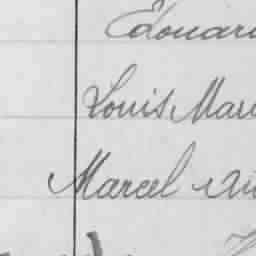 Edouar
Louis Mari
Marcel Au